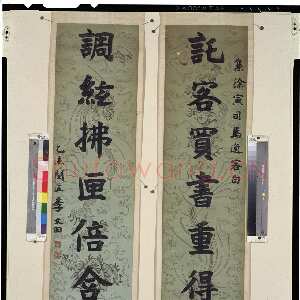 託客買書重得
集徐寅司馬逌客句
調絃拂匣倍含
乙亥閏五李文田